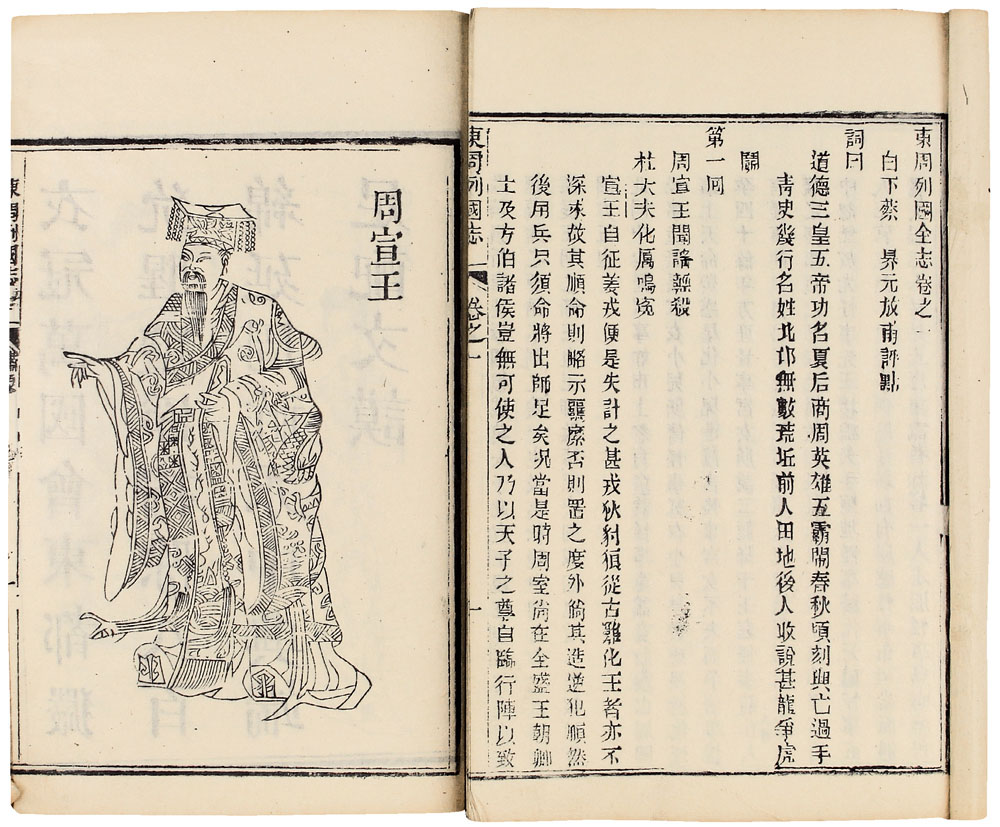 東周列國全志卷之一
白下蔡 昇元放甫評點
詞曰
道德三皇五帝功名夏后商周英雄五霸鬧春秋頃刻興亡過手
青史幾行名姓北邙無數荒坵前人田地後人收說甚龍爭虎
鬭
第一回
周宣王聞謠輕殺
杜大夫化厲鳴寃
宣王自征姜戎便是失計之甚戎狄豺狼從古難化王者亦不
深求故其順命則略示羈縻否則罟之度外倘其造逆犯順然
後用兵只須命將出師足矣況當是時周室尚在全盛王朝卿
士及方伯諸侯豈無可使之人乃以天子之尊自臨行陣以致
東周列國志 卷之一 一
周宣王
東周列國志